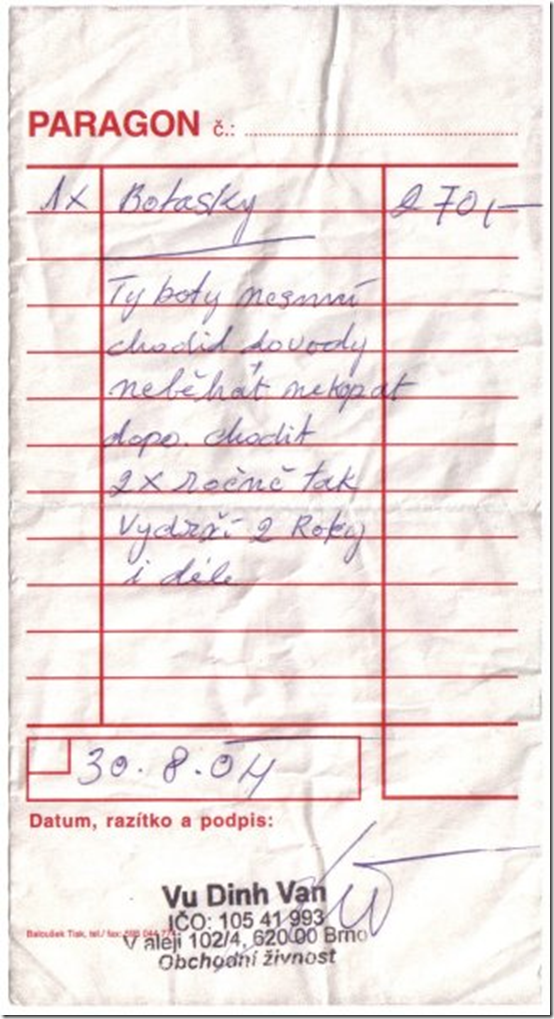 PARAGON č.:
1x Botasky 270,-
Ty boty nesmí
chodid dovody
neběhat nekopat
dopo. chodit
2x ročně tak
vydrží 2 Roky
i déle
30.8.04
Datum, razítko a podpis:
Vu Dinh Van
IČO: 105 41 993
Baloušek Tisk, tel./ fax:
V aleji 102/4, 620 00 Brno
Obchodní živnost